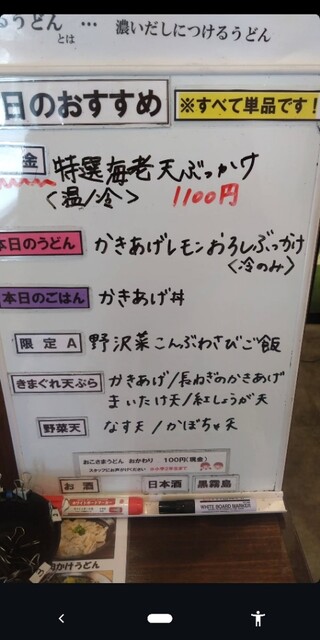 るうどん … 濃いだしにつけるうどん
とは
日のおすすめ ※すべて単品です！
金 特選海老天ぶっかけ
〈温/冷〉 1100円
本日のうどん かきあげレモンおろしぶっかけ
〈冷のみ〉
本日のごはん かきあげ丼
限定A 野沢菜こんぶわさびご飯
きまぐれ天ぷら かきあげ/長ねぎのかきあげ
まいたけ天/紅しょうが天
野菜天 なす天/かぼちゃ天
おこさまうどん おかわり 100円(現金)
スタッフにお声がけください
お酒 日本酒 黒霧島
ホワイトボードマーカー
WHITE BOARD MARKER
かけうどん